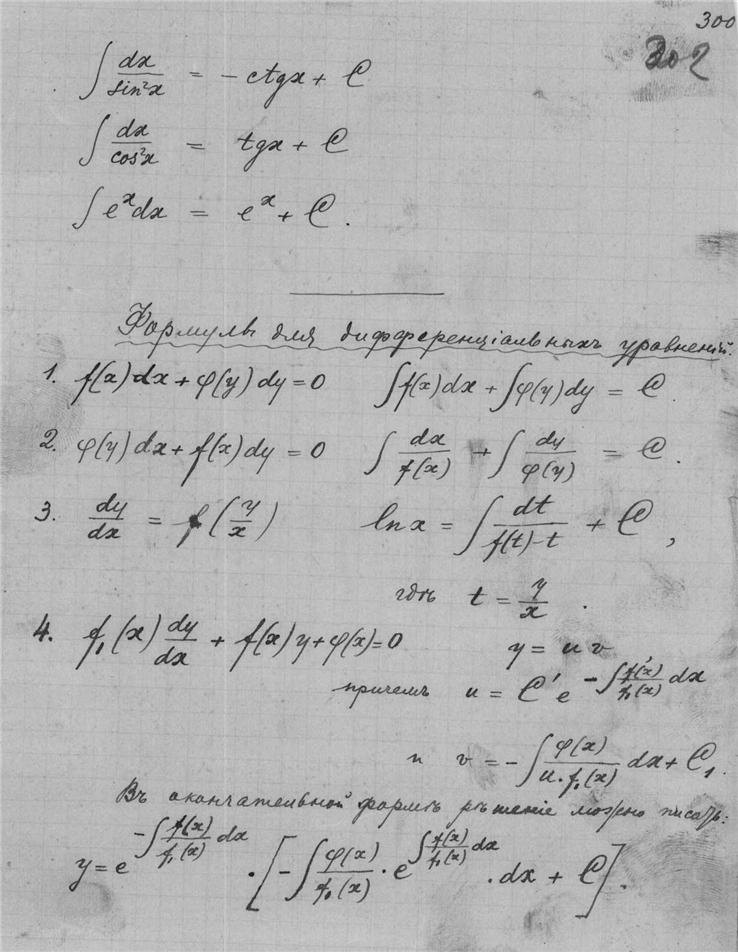 300
302
∫ dx/sin²x = - ctgx + C
∫ dx/cos²x = tgx + C
∫ eˣdx = eˣ + C.
Формулы для дифференціальныхъ уравненій.
1. f(x)dx + φ(y)dy = 0 ∫f(x)dx + ∫φ(y)dy = C
2. φ(y)dx + f(x)dy = 0 ∫ dx/f(x) + ∫ dy/φ(y) = C.
3. dy/dx = f(y/x) ln x = ∫ dt/(f(t)-t) + C,
гдѣ t = y/x.
4. f₁(x) dy/dx + f(x)y + φ(x) = 0 y = uv
причемъ u = C′e^(-∫ f(x)/f₁(x) dx)
и v = -∫ φ(x)/(u·f₁(x)) dx + C₁.
Въ окончательной формѣ рѣшеніе можно писать:
y = e^(-∫ f(x)/f₁(x) dx) · [-∫ φ(x)/f₁(x) · e^(∫ f(x)/f₁(x) dx) · dx + C].